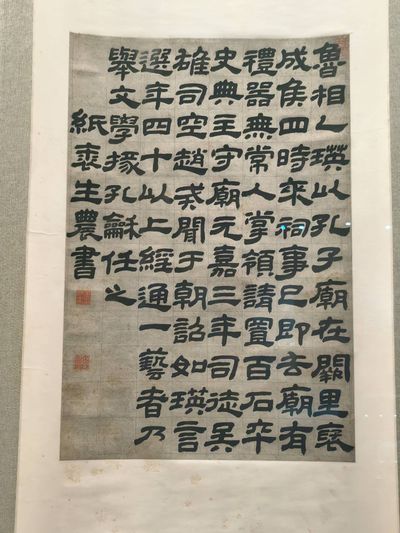 魯相乙瑛以孔子廟在闕里襃
成矦四時來祠事已即去廟有
禮器無常人掌領請置百石卒
史典主守廟元嘉三年司徒吴
雄司空趙戒聞于朝詔如瑛言
選年四十以上經通一藝者乃
舉文學掾孔龢任之
紙生農書